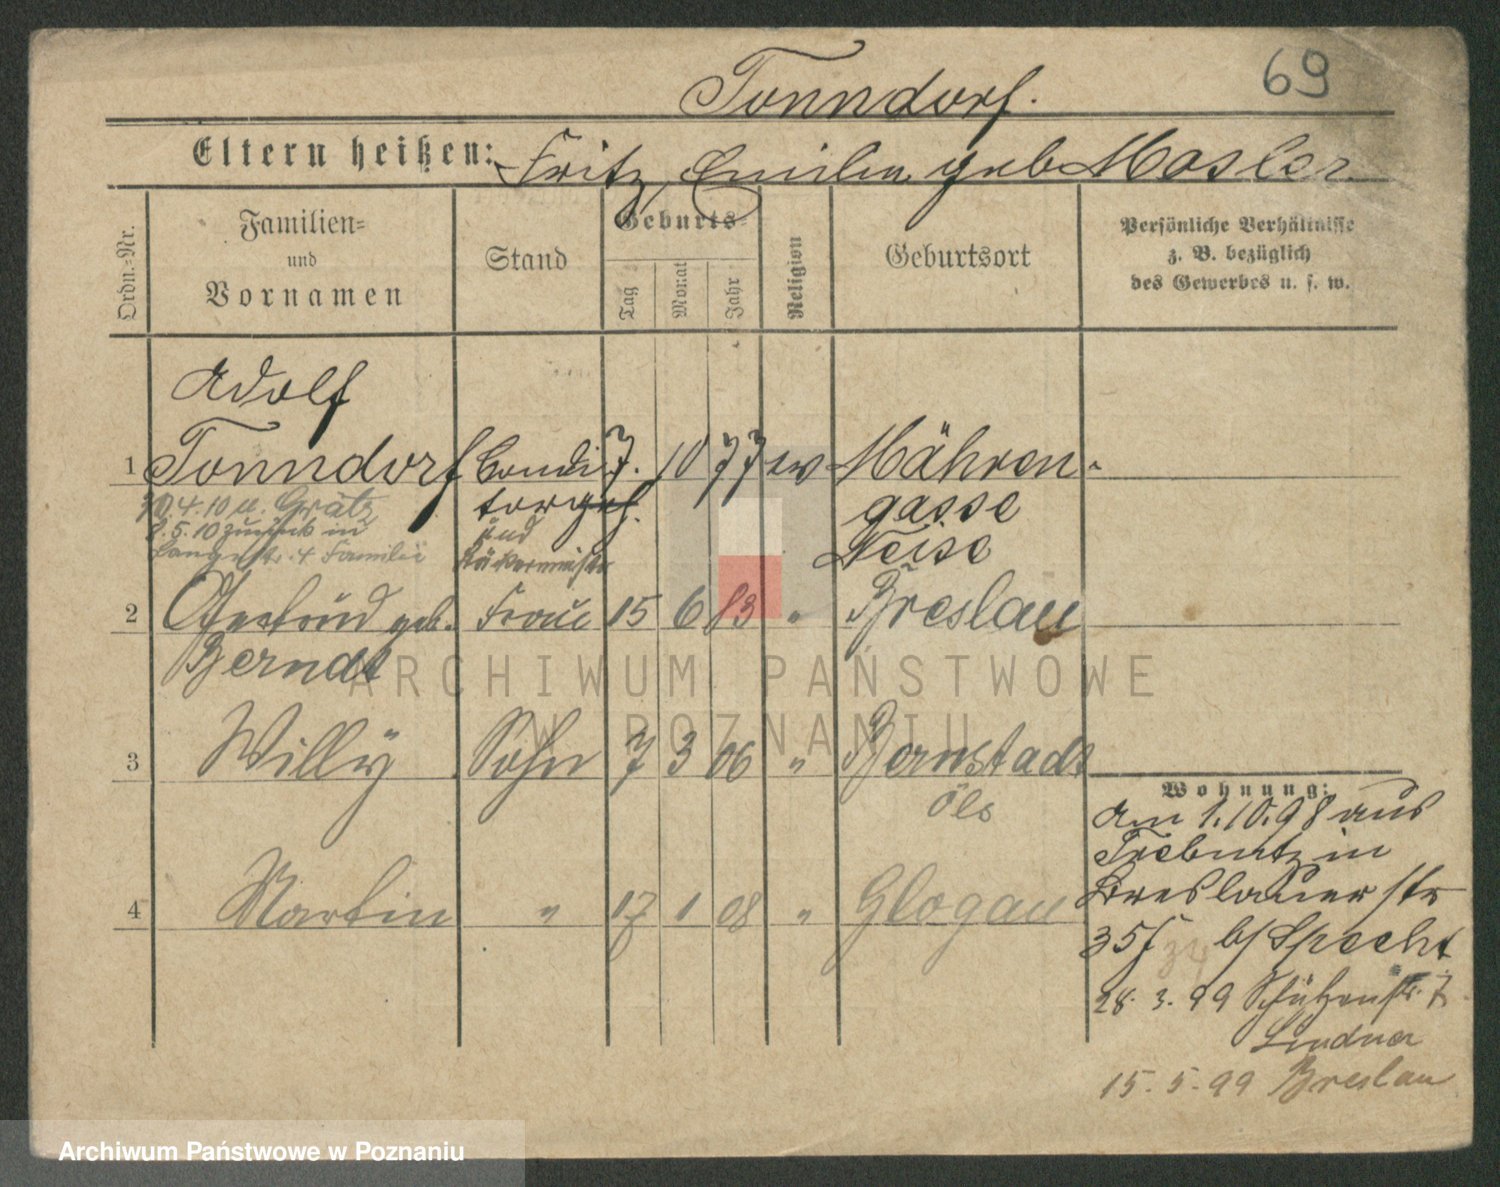 69
Tonndorf.
Eltern heißen: Fritz, Emilie geb Mosler
Ordn.-Nr.
Familien-
und
Vornamen
Stand
Geburts-
Tag
Monat
Jahr
Religion
Geburtsort
Persönliche Verhältnisse
z. B. bezüglich
des Gewerbes u. s. w.
Adolf
1 Tonndorf Condi 7. 10 77 ev Mähren-
torgeh. gasse
und Neisse
Bäkermeister
30.4.10 u. Grätz
2.5.10 zurück in
Langestr. 4 Familie
2 Gertrud geb. Frau 15 6 83 " Breslau
Berndt
3 Willy Sohn 7 3 06 " Bernstadt
Öls
4 Martin " 17 1 08 " Glogau
Wohnung:
Am 1.10.98 aus
Trebnitz in
Breslauerstr
35 34 b/ Specht
28. 3. 99 Schützenstr. 7
Lindner
15. 5. 99 Breslau
ARCHIWUM PAŃSTWOWE
W POZNANIU
Archiwum Państwowe w Poznaniu